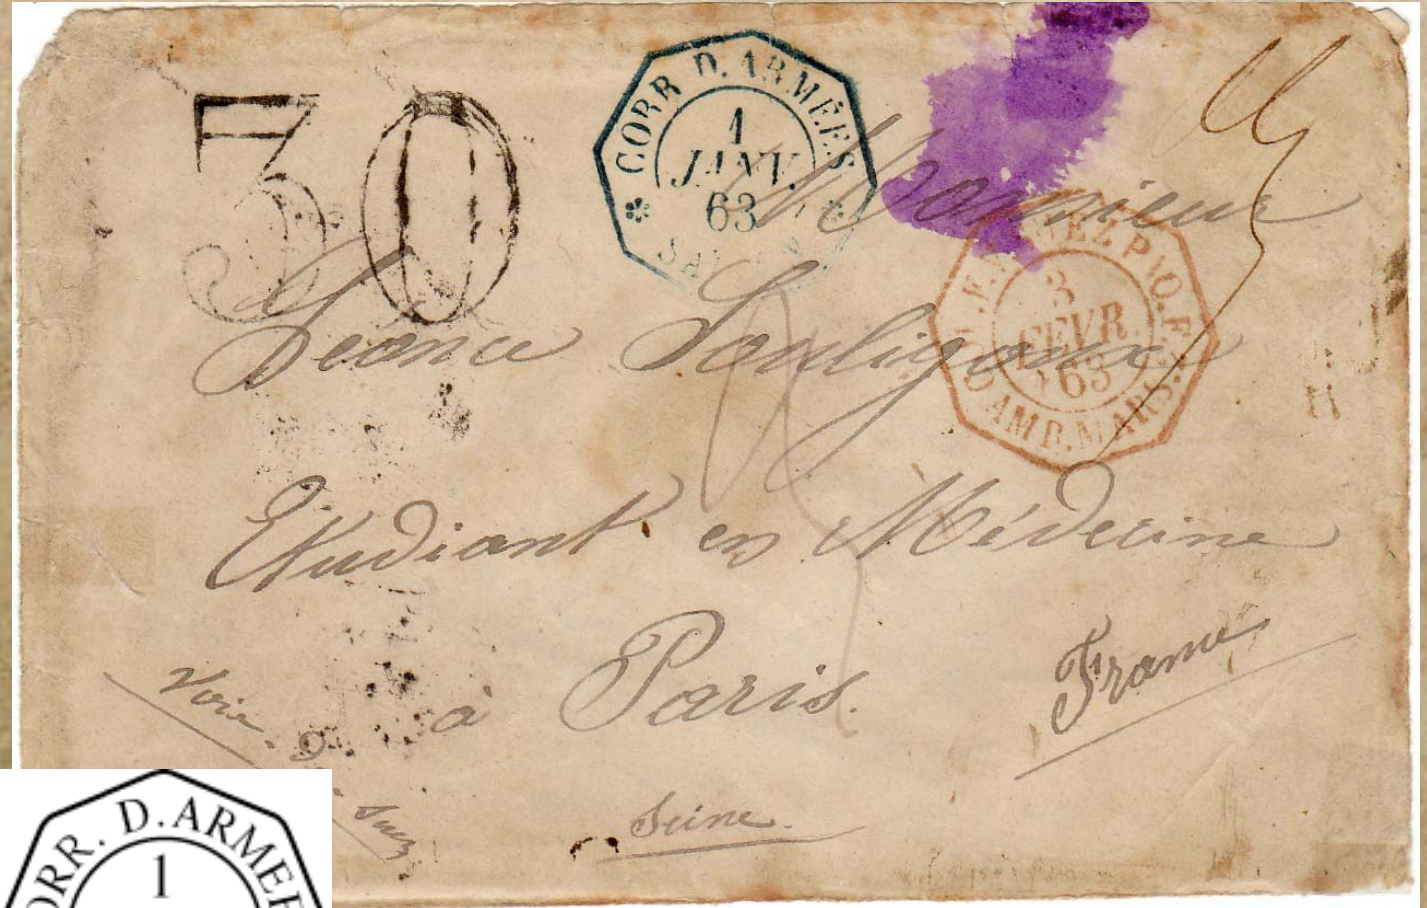 30
CORR. D. ARMÉES
1
JANV.
63
Monsieur
EZ PAQ. F.
3
FEVR.
63
D AMB. MARS.
Léonce Souligoux
Etudiant en Médecine
à Paris.
France
Voie
Suez
Seine
CORR. D. ARMÉE
1